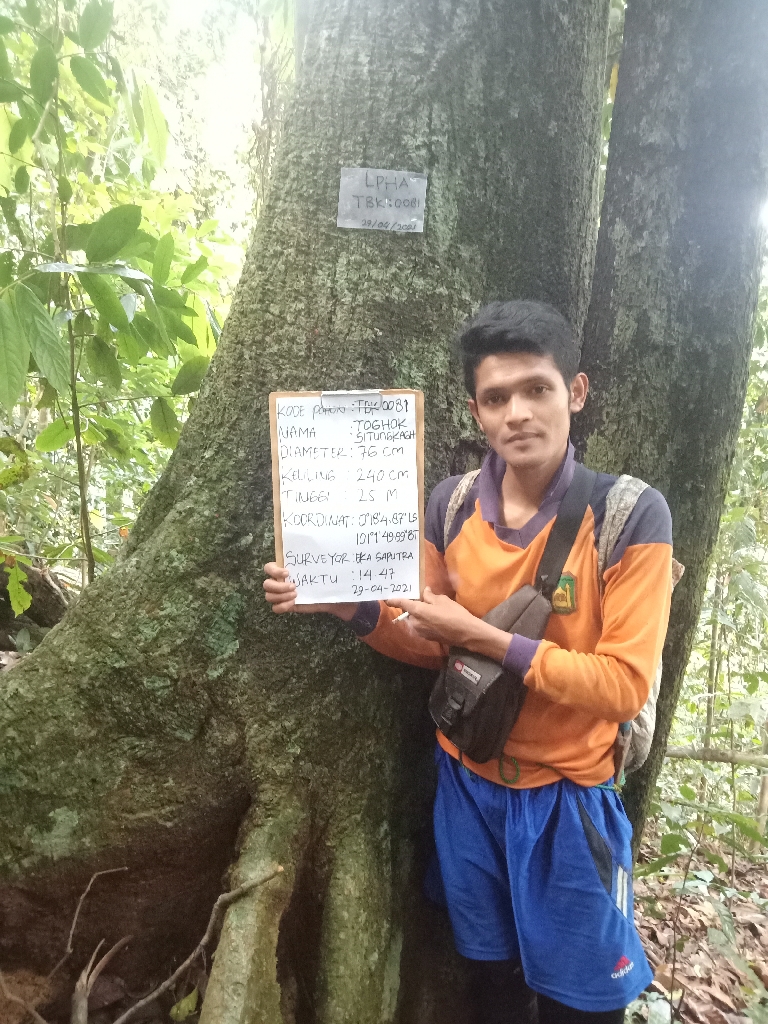 LPHA
TBK:0081
29/04/2021
KODE POHON : TBK0081
NAMA : TOGHOK
SITUNGKAGH
DIAMETER : 76 CM
KELILING : 240 CM
TINGGI : 25 M
KOORDINAT : 0°18'4.87" LS
101°1'49.99" BT
SURVEYOR : EKA SAPUTRA
WAKTU : 14.47
29-04-2021
adidas